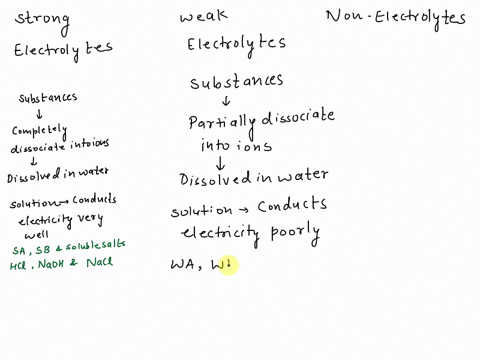 Strong
Electrolytes
Substances
↓
Completely
dissociate into ions
↓
Dissolved in water
Solution → Conducts
electricity very
well
SA, SB & soluble salts
HCl, NaOH & NaCl
weak
Electrolytes
Substances
↓
Partially dissociate
into ions
↓
Dissolved in water
Solution → Conducts
electricity poorly
WA,
Non-Electrolytes